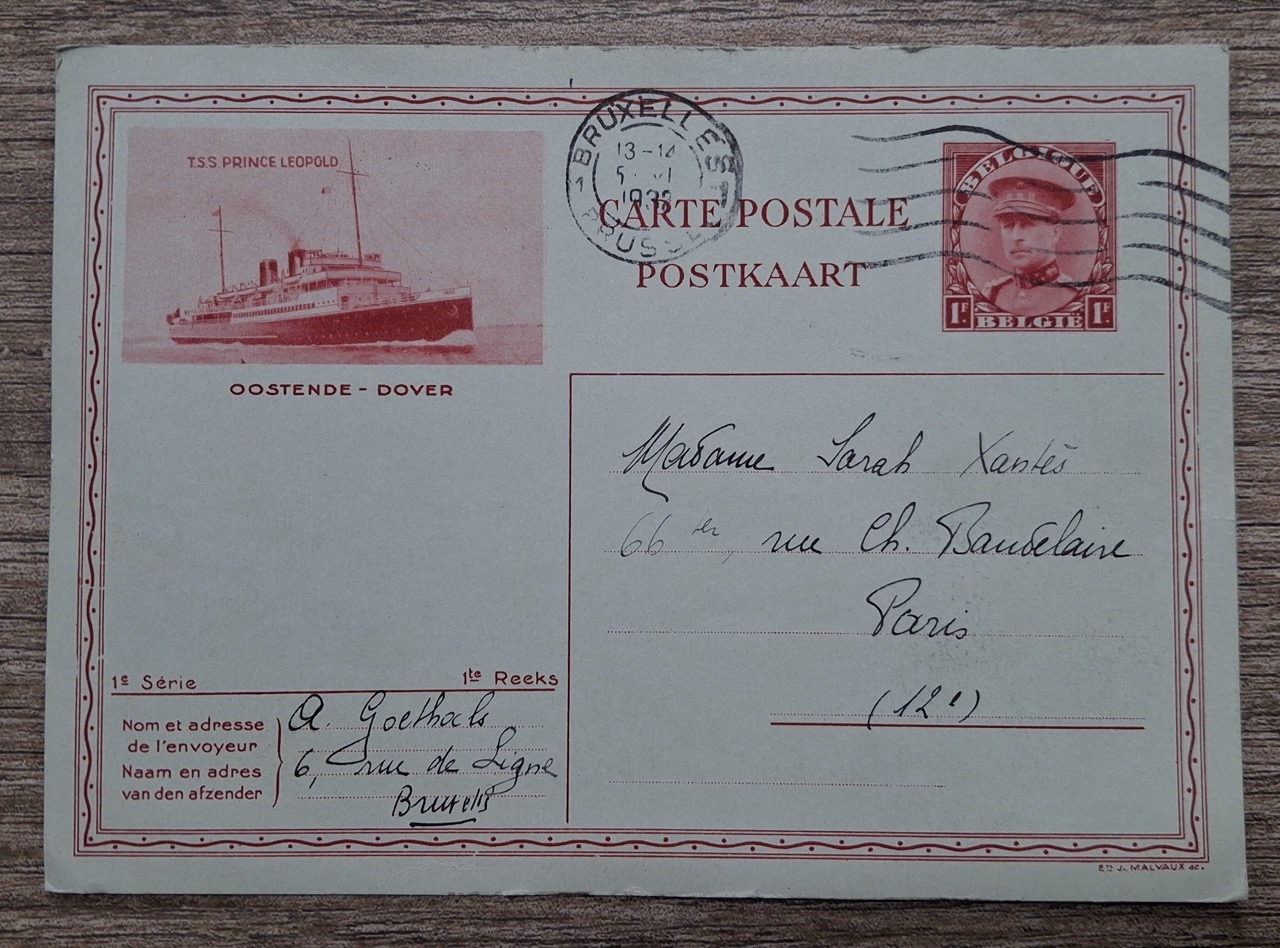 T.S.S. PRINCE LEOPOLD
OOSTENDE - DOVER
BRUXELLES
13-14
1
CARTE POSTALE
POSTKAART
BELGIQUE
1F BELGIË 1F
Madame Sarah Xantès
66 ter, rue Ch. Baudelaire
Paris
(12e)
1e Série 1te Reeks
Nom et adresse
de l'envoyeur
Naam en adres
van den afzender
A. Goethals
6, rue de Ligne
Bruxelles
ETS J. MALVAUX